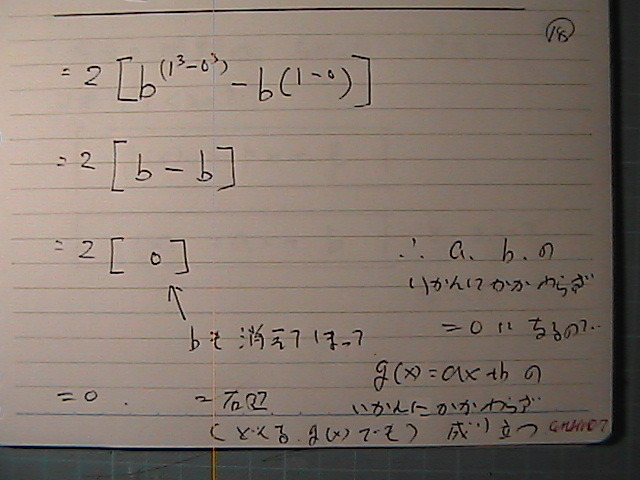 18
= 2 [b^(1³-0³) - b(1-0)]
= 2 [b - b]
= 2 [0]
bも消えてしまって
= 0. = 右辺
∴ a, b, の
いかんにかかわらず
= 0 になるので..
g(x) = ax+b の
いかんにかかわらず
( g(x)でも) 成り立つ answer